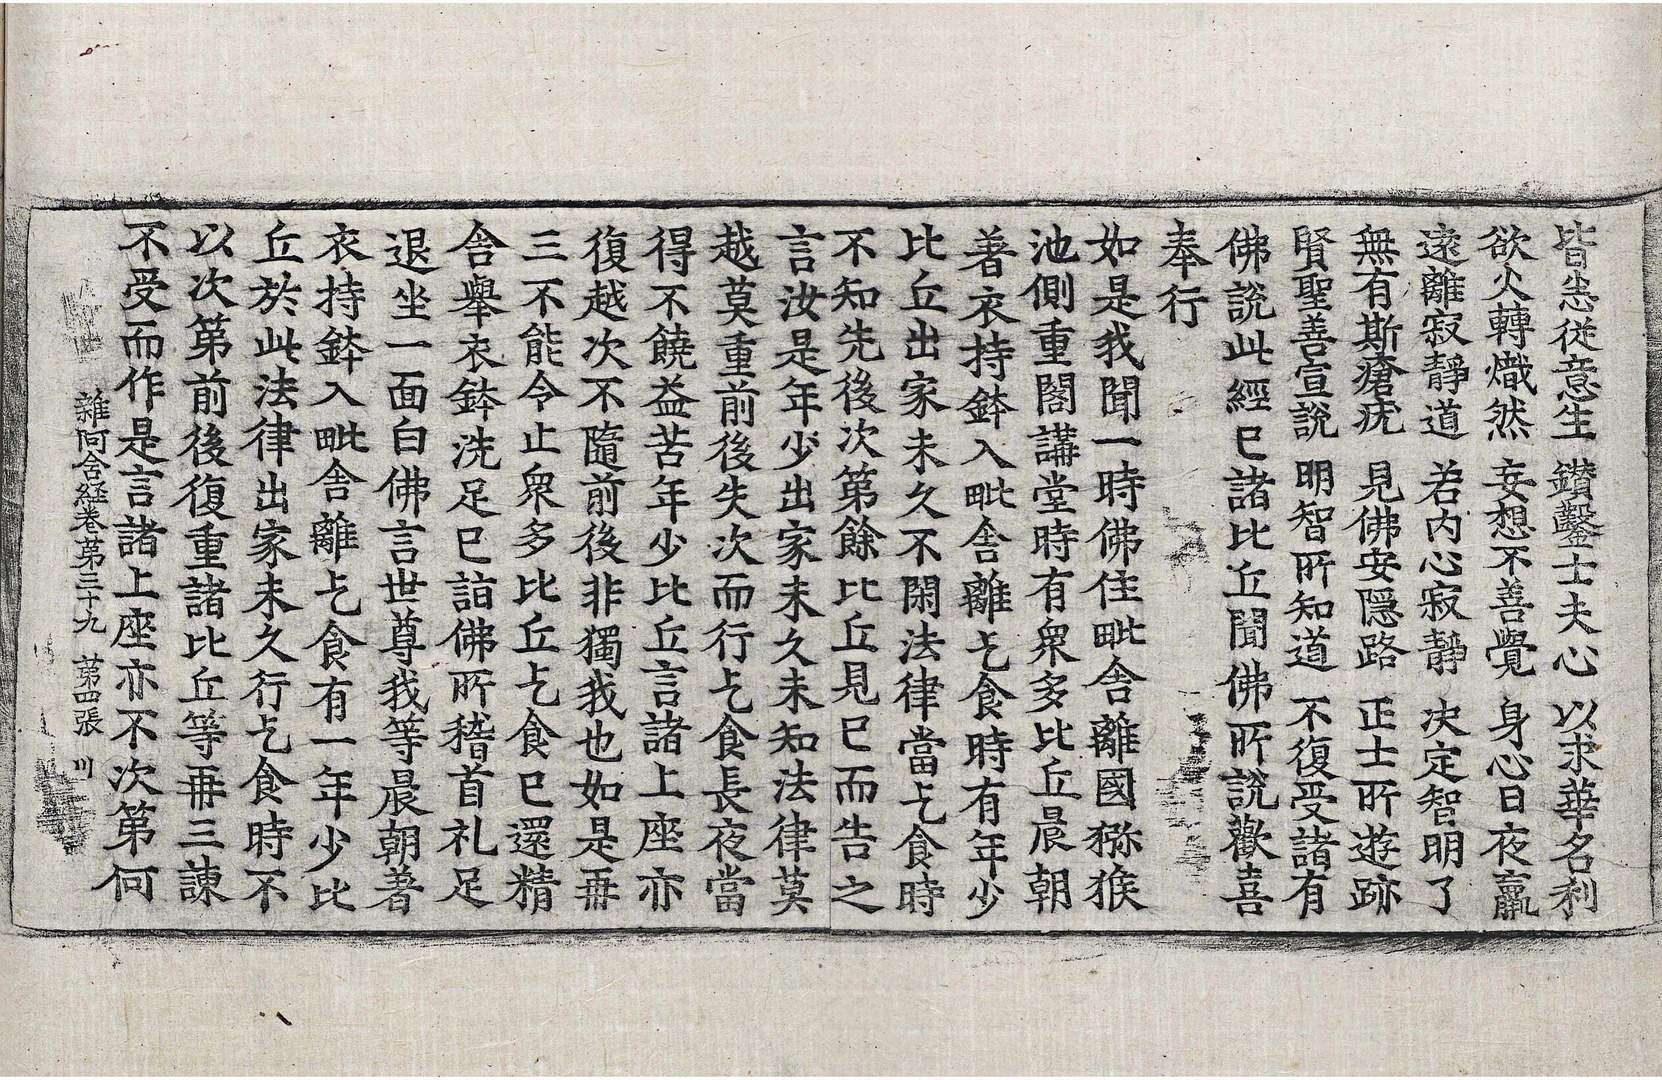 皆悉従意生 鑚鑿士夫心 以求華名利
欲火轉熾然 妄想不善覺 身心日夜羸
逺離寂靜道 若内心寂靜 决定智明了
無有斯瘡疣 見佛安隱路 正士所遊跡
賢聖善宣說 明智所知道 不復受諸有
佛說此經已諸比丘聞佛所說歡喜
奉行
如是我聞一時佛住毗舍離國獼猴
池側重閣講堂時有衆多比丘晨朝
著衣持鉢入毗舍離乞食時有年少
比丘出家未久不閑法律當乞食時
不知先後次第餘比丘見已而告之
言汝是年少出家未久未知法律莫
越莫重前後失次而行乞食長夜當
得不饒益苦年少比丘言諸上座亦
復越次不隨前後非獨我也如是再
三不能令止衆多比丘乞食已還精
舍舉衣鉢洗足已詣佛所稽首礼足
退坐一面白佛言世尊我等晨朝著
衣持鉢入毗舍離乞食有一年少比
丘於此法律出家未久行乞食時不
以次第前後復重諸比丘等再三諫
不受而作是言諸上座亦不次第何
雜阿含経卷第三十九 第四張 川